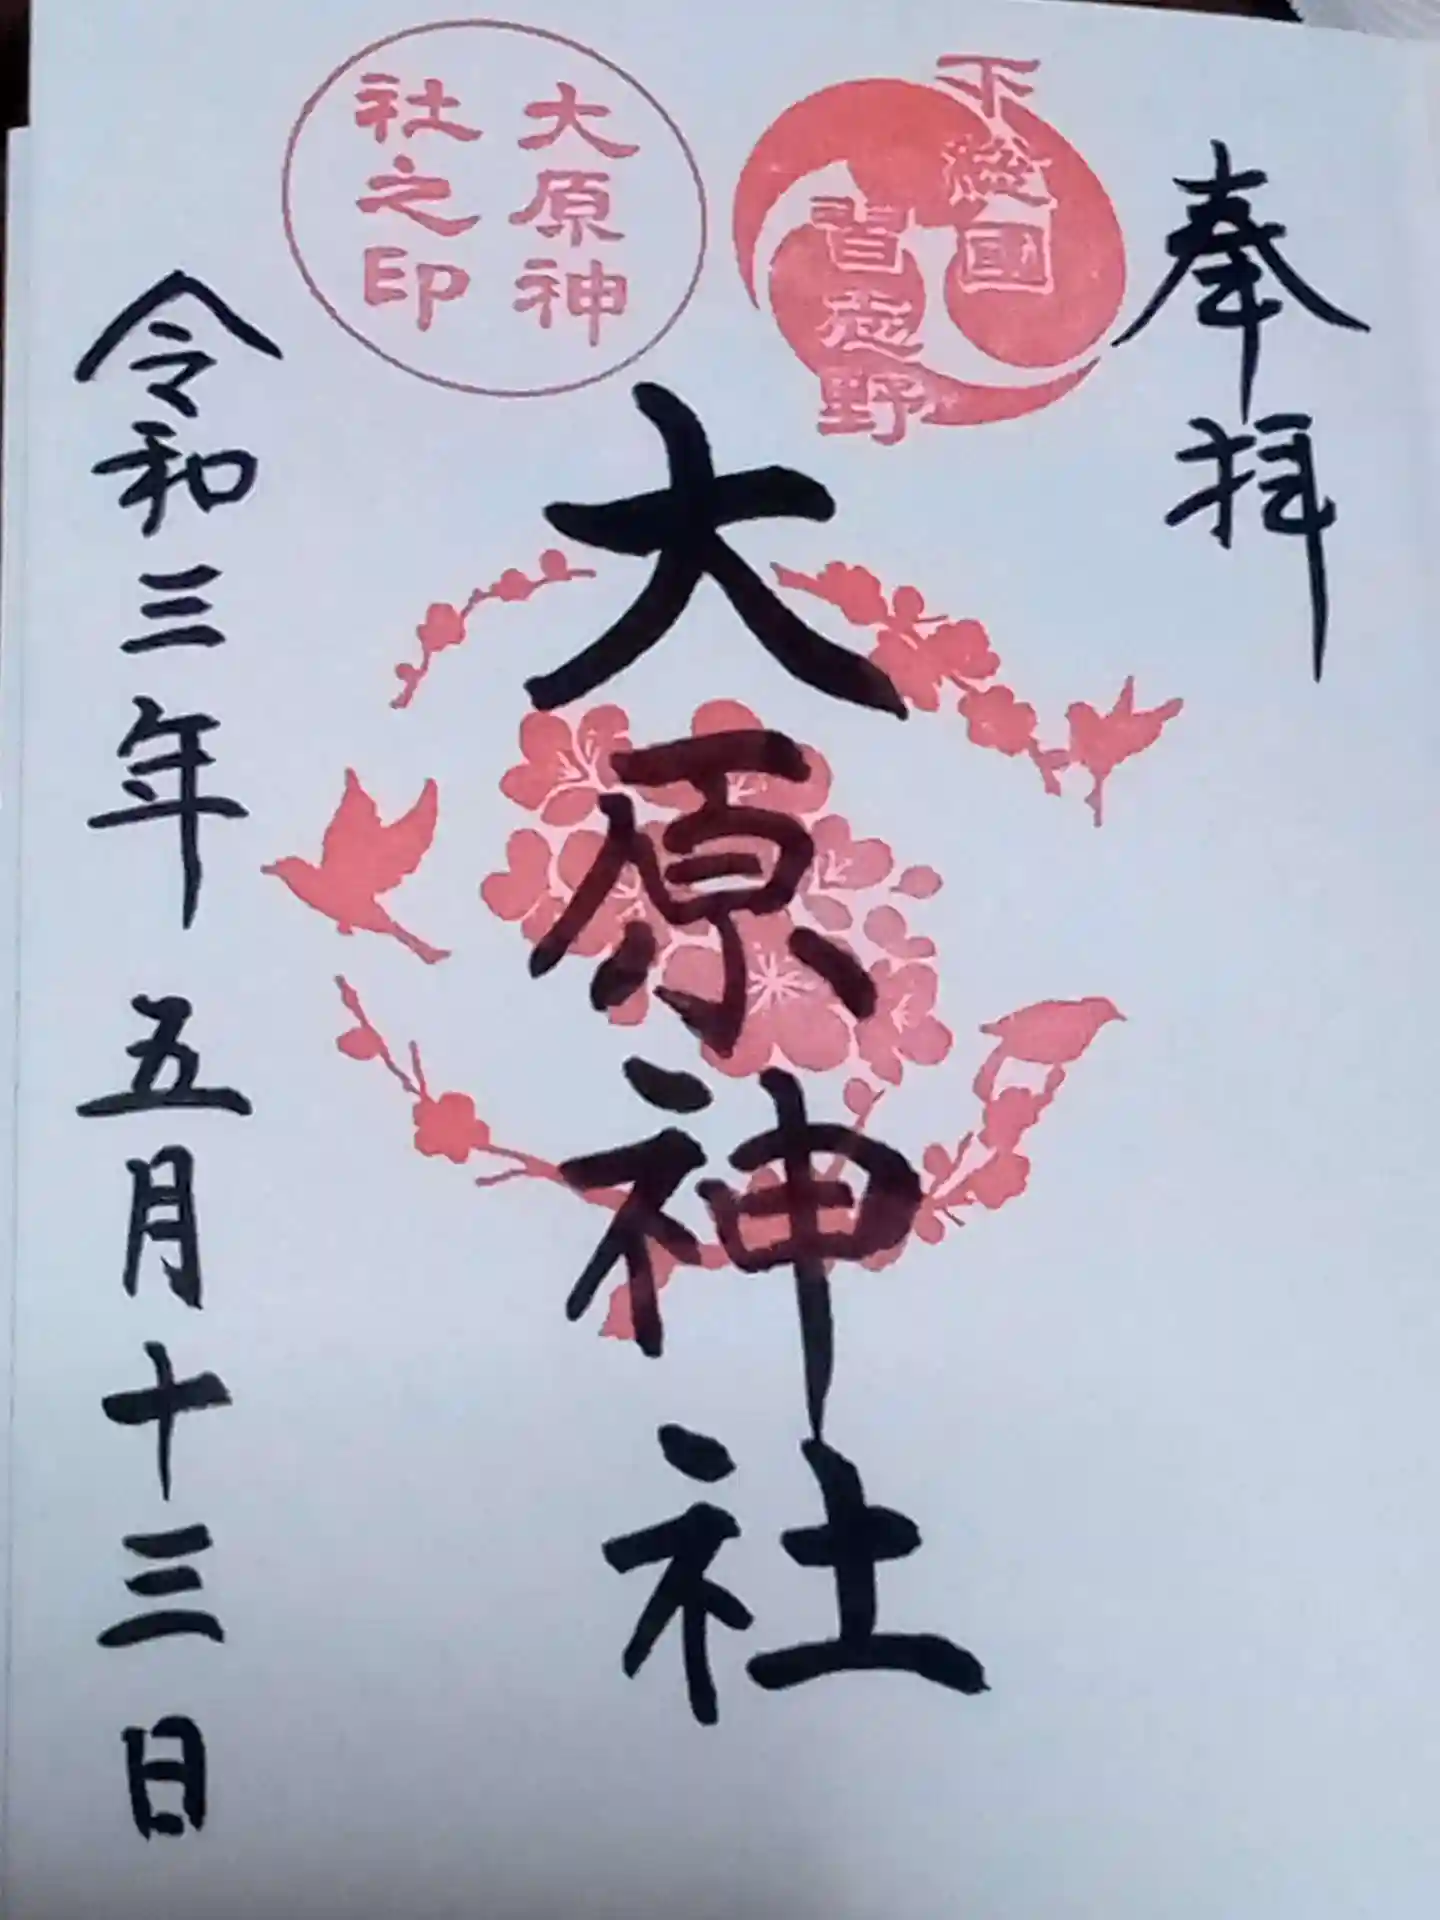 奉拝
下総國
習志野
大原神
社之印
大原神社
令和三年五月十三日